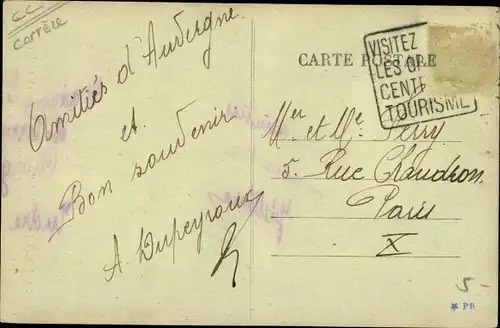 CC
Corrèze
Amitiés d'Auvergne
et
Bon souvenir
A. Dupeyroux
CARTE POSTALE
VISITEZ
LES
CENT
TOURISME
Mr et Me Perry
5. Rue Chaudron
Paris
X
5-
PB